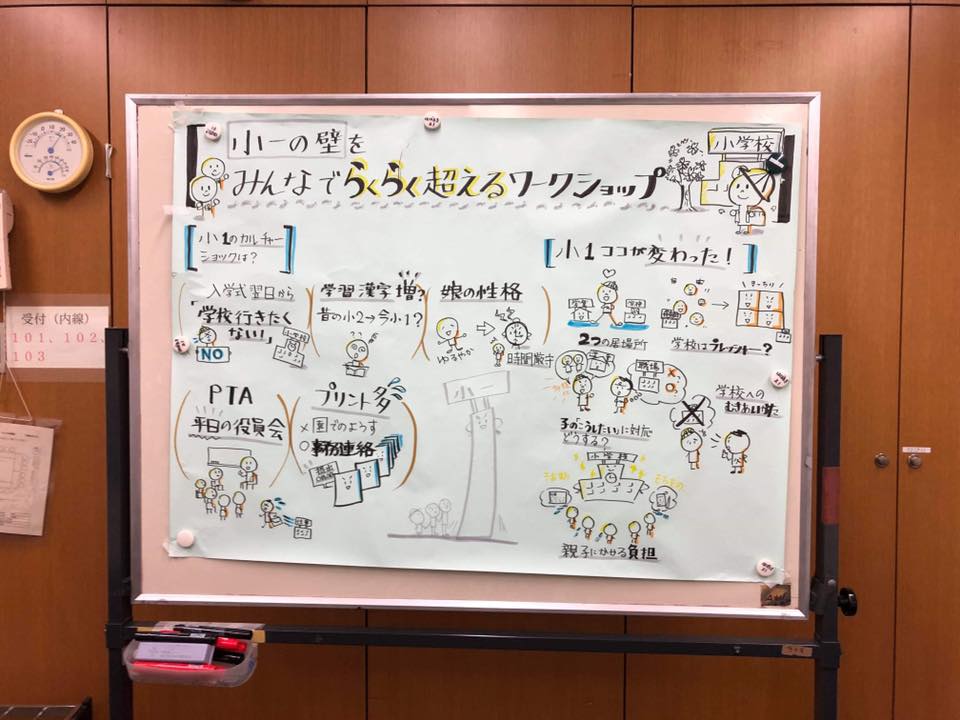 小一の壁を
みんなでらくらく超えるワークショップ
小学校
小1のカルチャー
ショックは?
入学式翌日から
「学校行きたく
ない!」
NO
学習漢字増?
昔の小2→今小1?
娘の性格
ゆるやか
時間厳守
PTA
平日の役員会
プリント多
×園でのようす
○事務連絡
小一
小1ココが変わった!
2つの居場所
きっちり
学校はプレゼント?
職場
学校への
むきあい方
子の「こうしたい」に対応
どうする?
小学校
親子にかかる負担
受付(内線)
101、102、
103